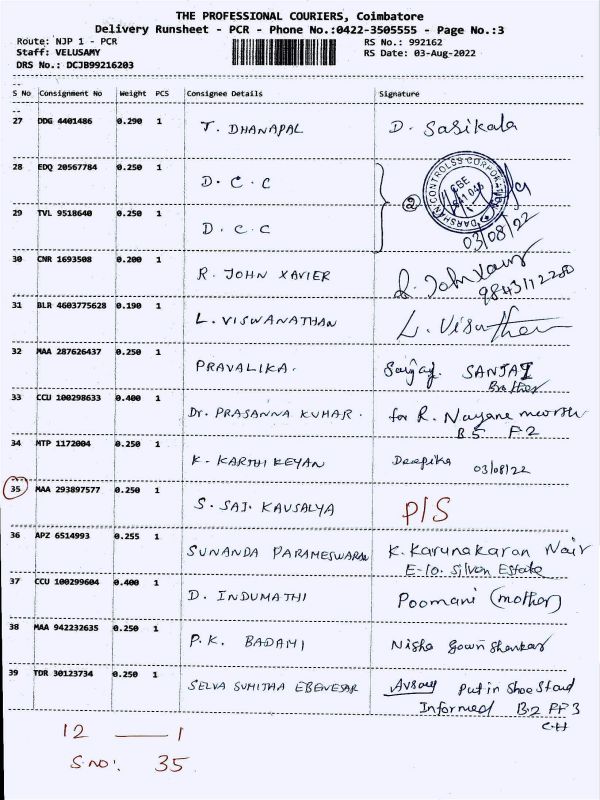 THE PROFESSIONAL COURIERS, Coimbatore
Delivery Runsheet - PCR - Phone No.:0422-3505555 - Page No.:3
Route: NJP 1 - PCR
RS No.: 992162
Staff: VELUSAMY
RS Date: 03-Aug-2022
DRS No.: DCJB99216203
S No Consignment No Weight PCS Consignee Details Signature
27 DDG 4401486 0.290 1 T. DHANAPAL D. Sasikala
28 EDQ 20567784 0.250 1 D. C. C
DARSHAN CONTROLSS CORPORATION
CBE
29 TVL 9518640 0.250 1 D. C. C
03/08/22
30 CNR 1693508 0.200 1 R. JOHN XAVIER
9843112200
31 BLR 4603775628 0.190 1 L. VISWANATHAN
32 MAA 287626437 0.250 1 PRAVALIKA. SANJAI
Brother
33 CCU 100298633 0.400 1 Dr. PRASANNA KUMAR. for R.
B5 F2
34 MTP 1172004 0.250 1 K. KARTHIKEYAN Deepika 03/08/22
35 MAA 293897577 0.250 1 S. SAI. KAUSALYA P/S
36 APZ 6514993 0.255 1 SUNANDA PARAMESWARAN K. Karunakaran Nair
E-10. Silver Estate
37 CCU 100299604 0.400 1 D. INDUMATHI Poomani (mother)
38 MAA 942232635 0.250 1 P. K. BADAMI Nisha Gowri Shankar
39 TDR 30123734 0.250 1 SELVA SUMITHA EBENESAR Put in Shoe Stand
Informed B2 FF3
C.H
12 — 1
S NO: 35